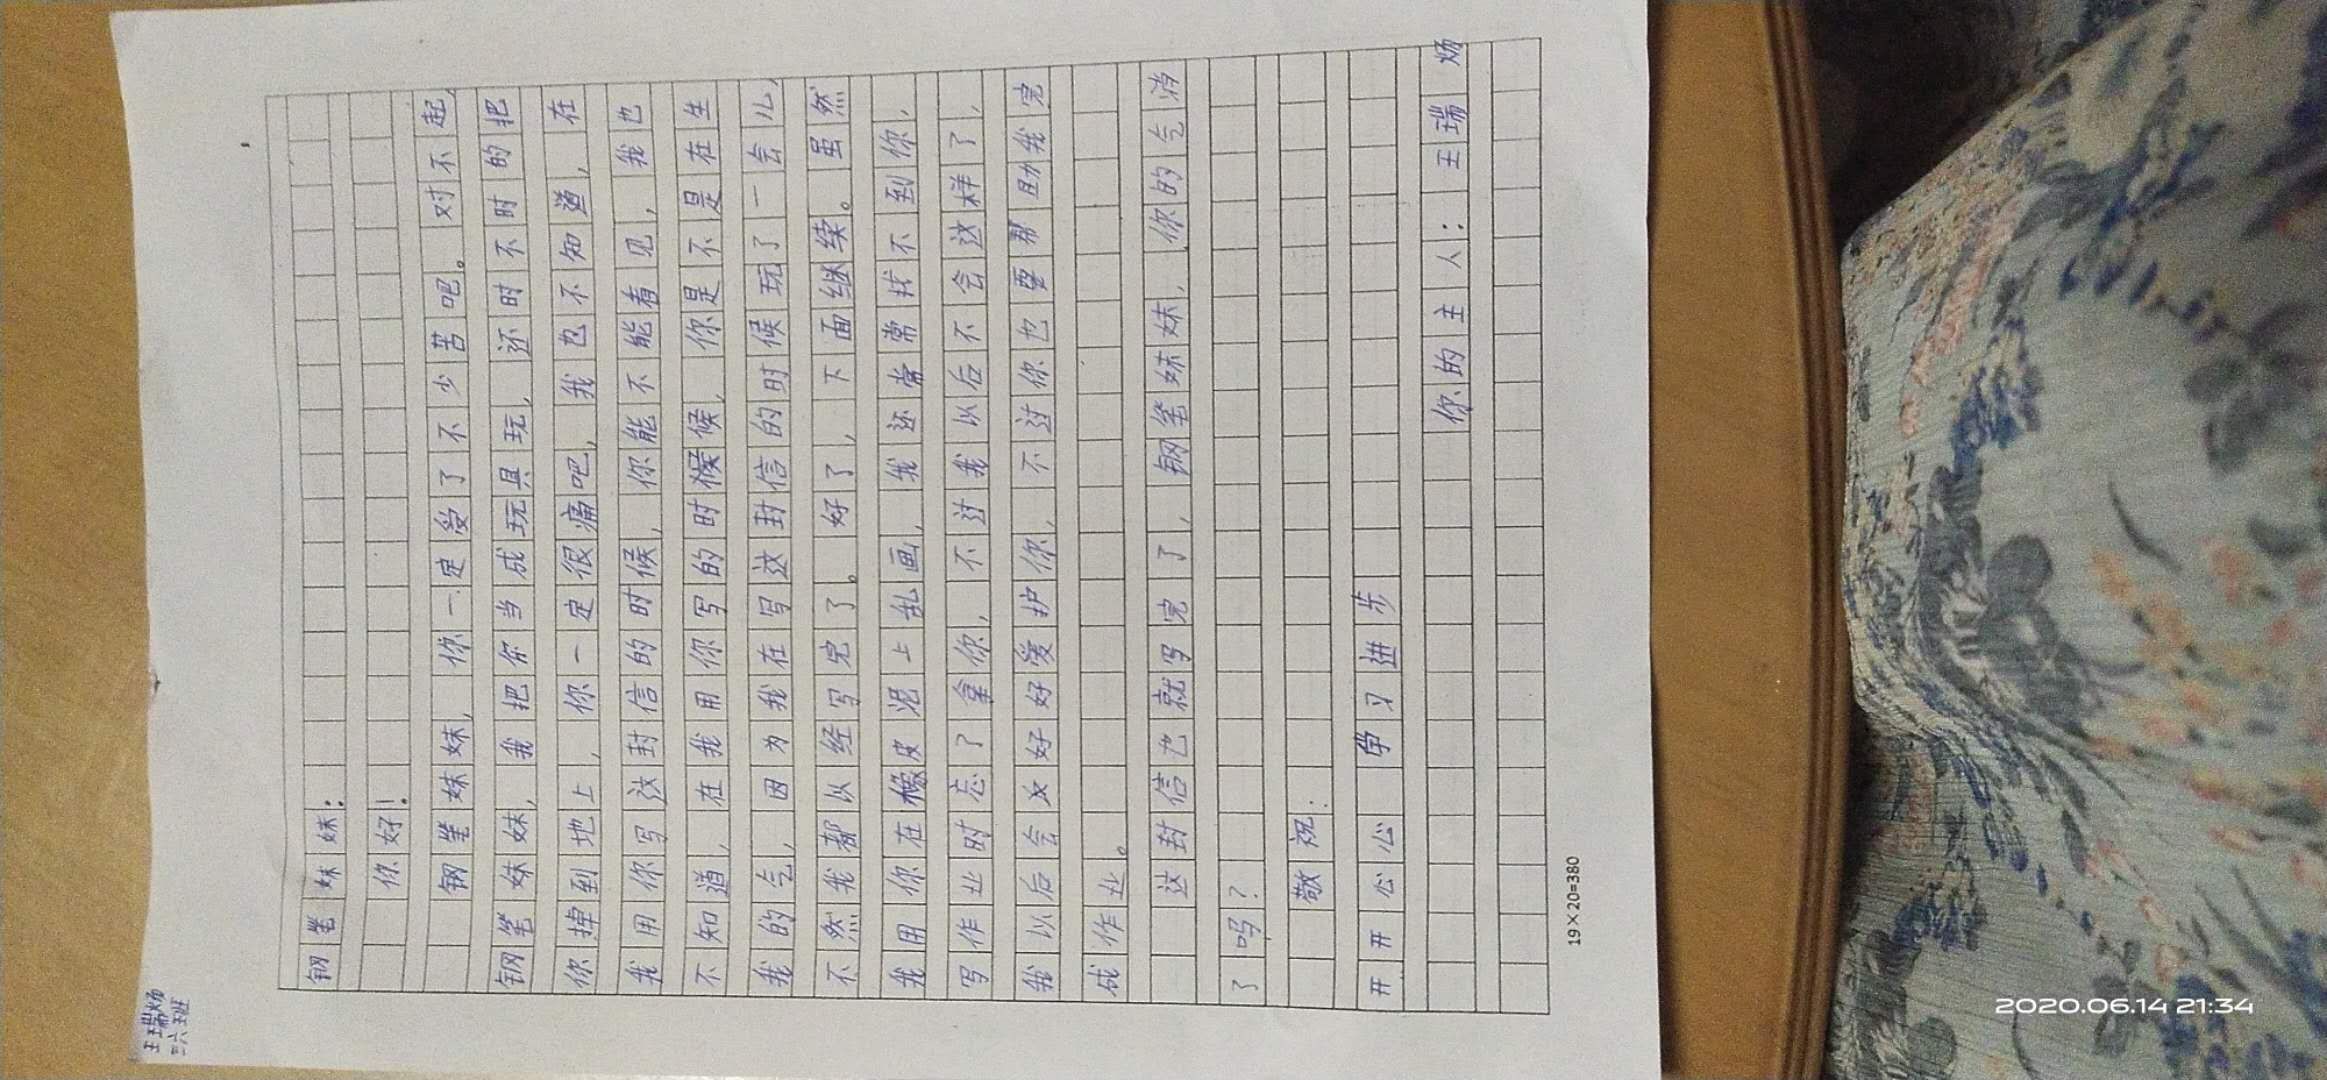 王瑞炀
三六班
钢笔妹妹:
你好!
钢笔妹妹,你一定受了不少苦吧。对不起,
钢笔妹妹,我把你当成玩具玩,还时不时的把
你掉到地上,你一定很痛吧,我也不知道,在
我用你写这封信的时候,你能不能看见,我也
不知道,在我用你写的时候候,你是不是在生
我的气,因为我在写这封信的时候玩了一会儿,
不然我都以经写完了。好了,下面继续。虽然
我用你在橡皮泥上乱画,我还常常找不到你,
写作业时忘了拿你,不过我以后不会这样了,
我以后会好好爱护你,不过你也要帮助我完
成作业。
这封信也就写完了,钢笔妹妹,你的气消
了吗?
敬祝:
开开心心 学习进步
你的主人:王瑞炀
19×20=380
2020.06.14 21:34